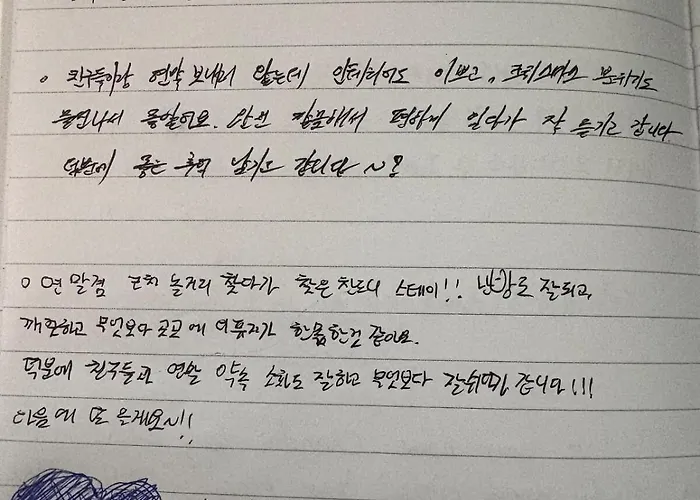 ○ 친구들이랑 연박 보내러 왔는데 인테리어도 이쁘고, 크리스마스 분위기도
물씬나서 좋았어요. 완전 깔끔해서 편하게 있다가 잘 즐기고 갑니다.
덕분에 좋은 추억 남기고 갑니다~!
○ 연말겸 근처 놀거리 찾다가 찾은 스테이!! 난방도 잘되고,
깨끗하고 무엇보다 곳곳에 휴지가 한몫한것 같아요.
덕분에 친구들과 연말 약속 소화도 잘하고 무엇보다 잘쉬다 갑니다!!!
다음에 또 올게요~!!